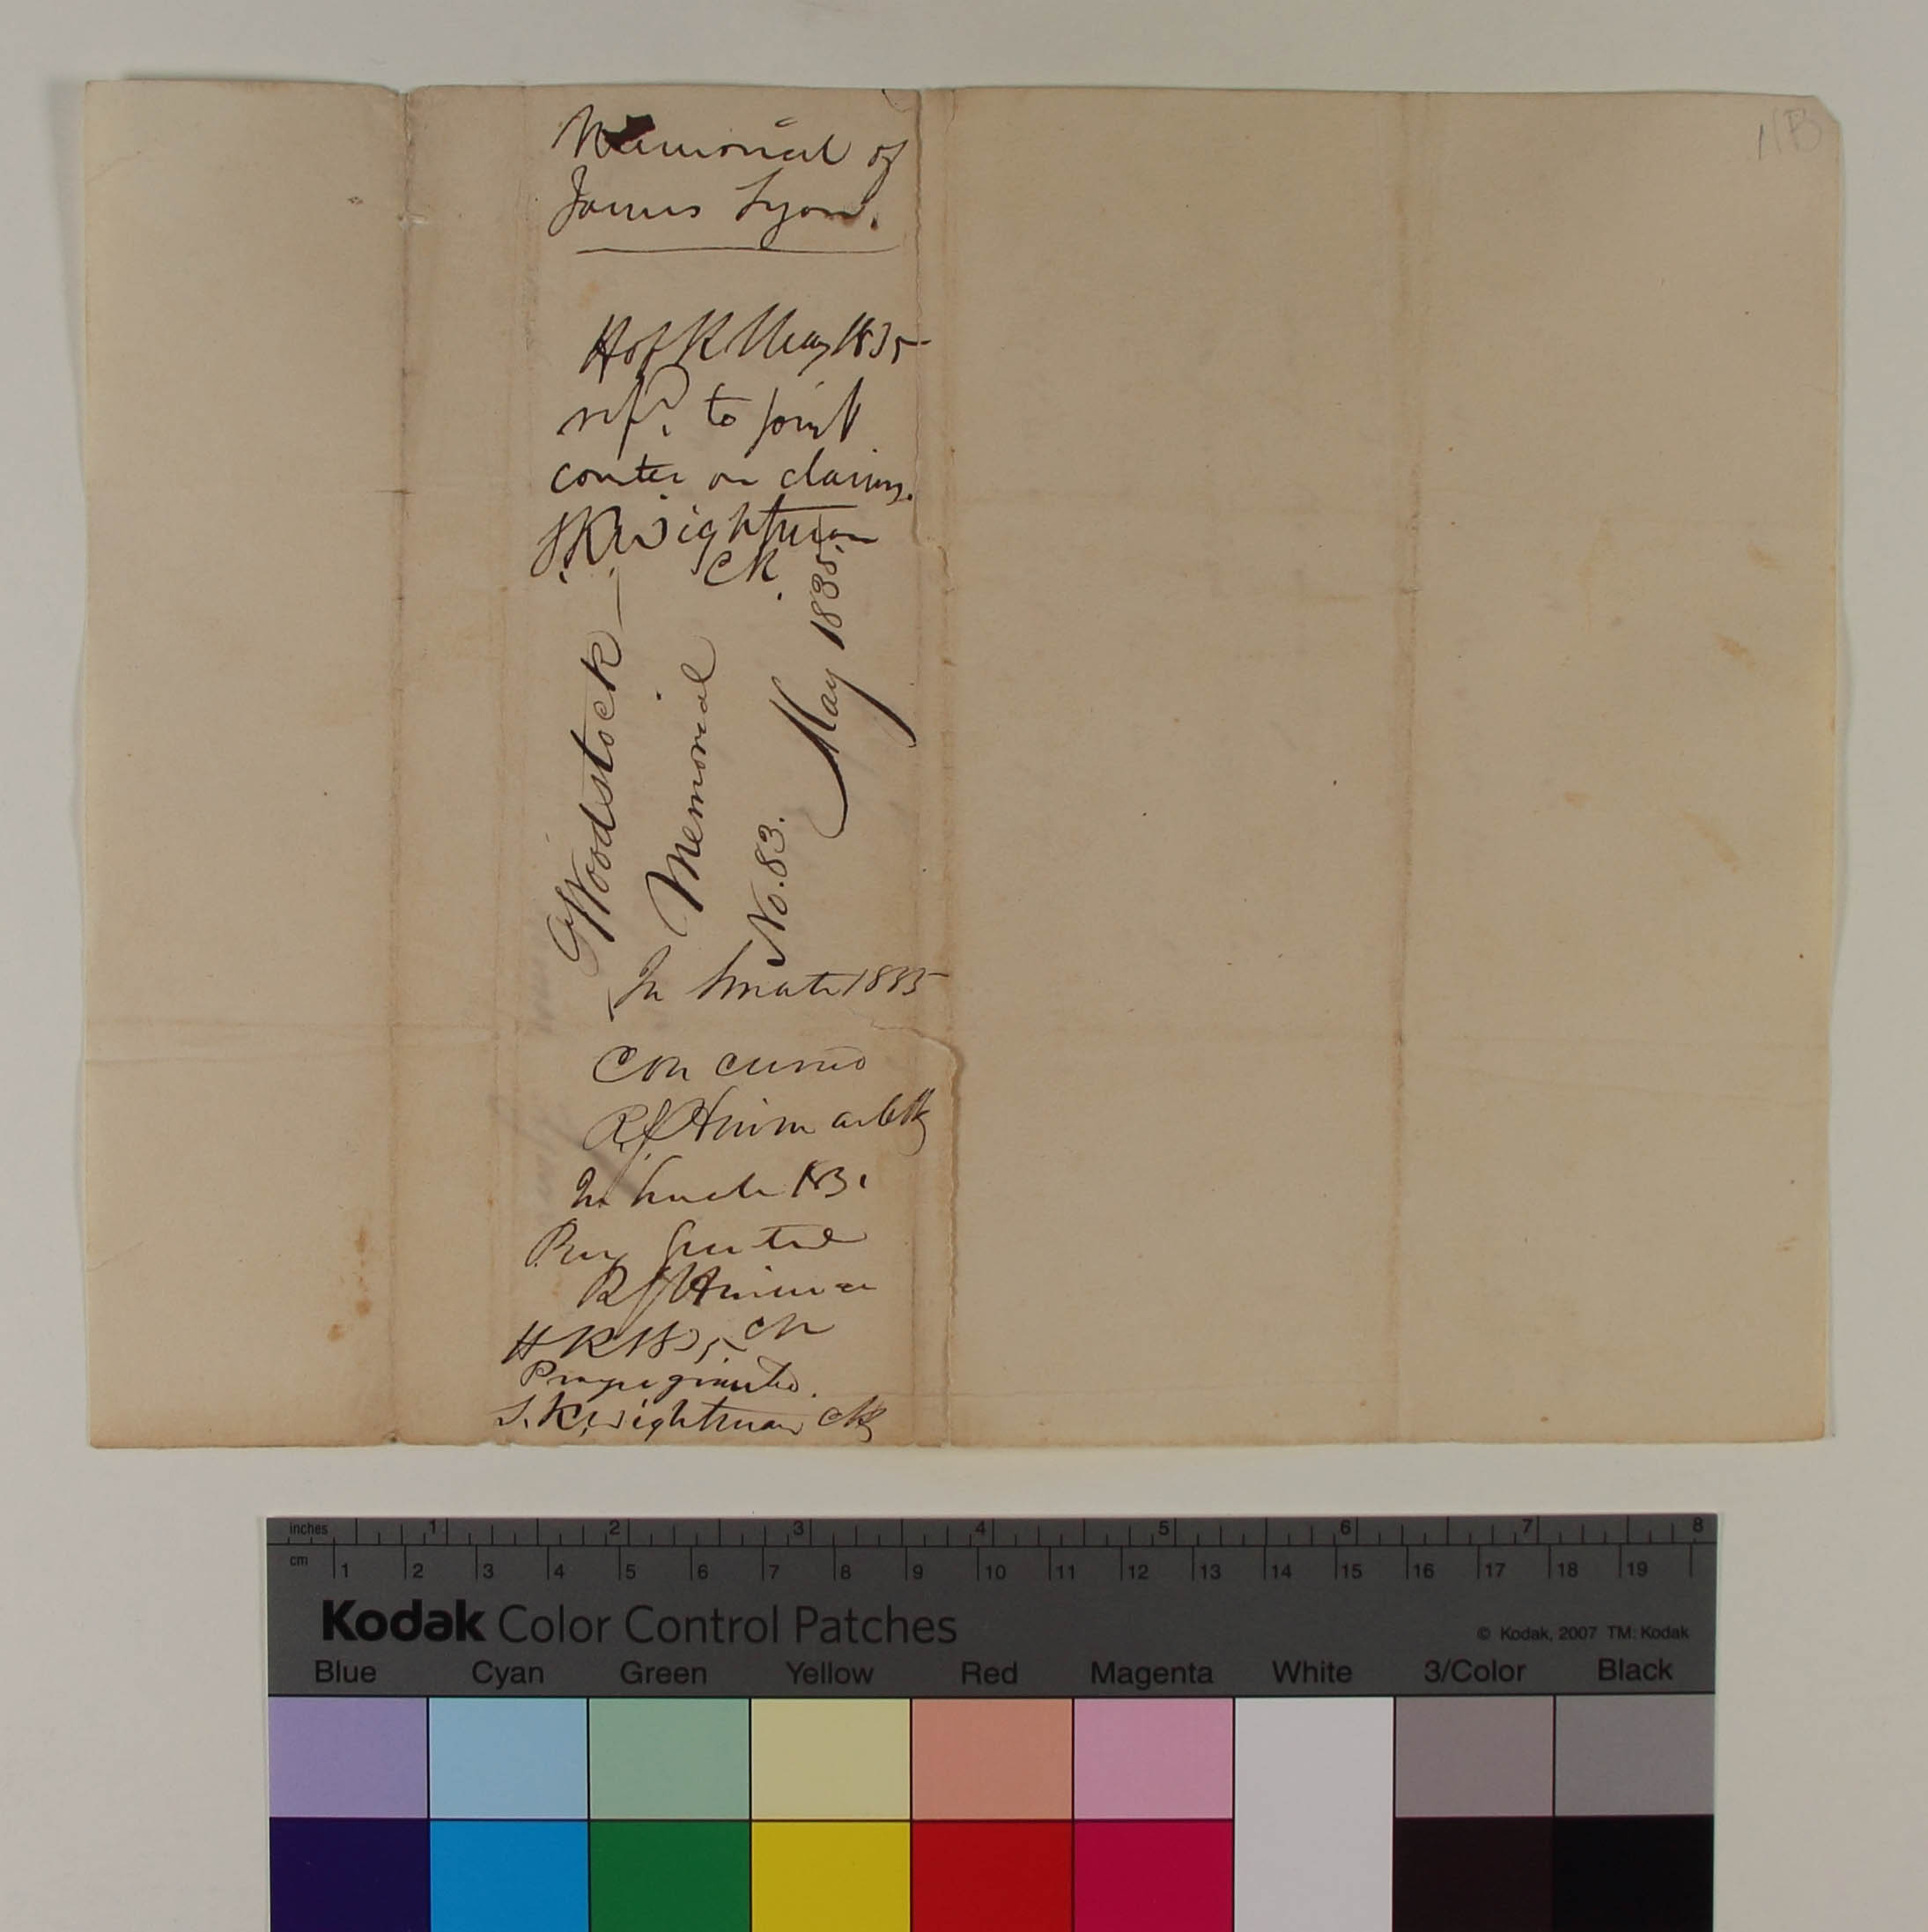 Memorial of
James Lyon.
H of R May 1835
refd. to joint
comtee on claims.
S. K. Wightman
Ck.
Woodstock
Memorial
No. 83.
May 1835.
In Senate 1835
Concurred
R R Hinman Clk
In Senate 183
Pray granted
R R Hinman
Ck
H R 1835
Prayer granted.
S. K. Wightman Ck
11B
inches 1 2 3 4 5 6 7 8
cm 1 2 3 4 5 6 7 8 9 10 11 12 13 14 15 16 17 18 19
Kodak Color Control Patches
© Kodak, 2007 TM: Kodak
Blue Cyan Green Yellow Red Magenta White 3/Color Black